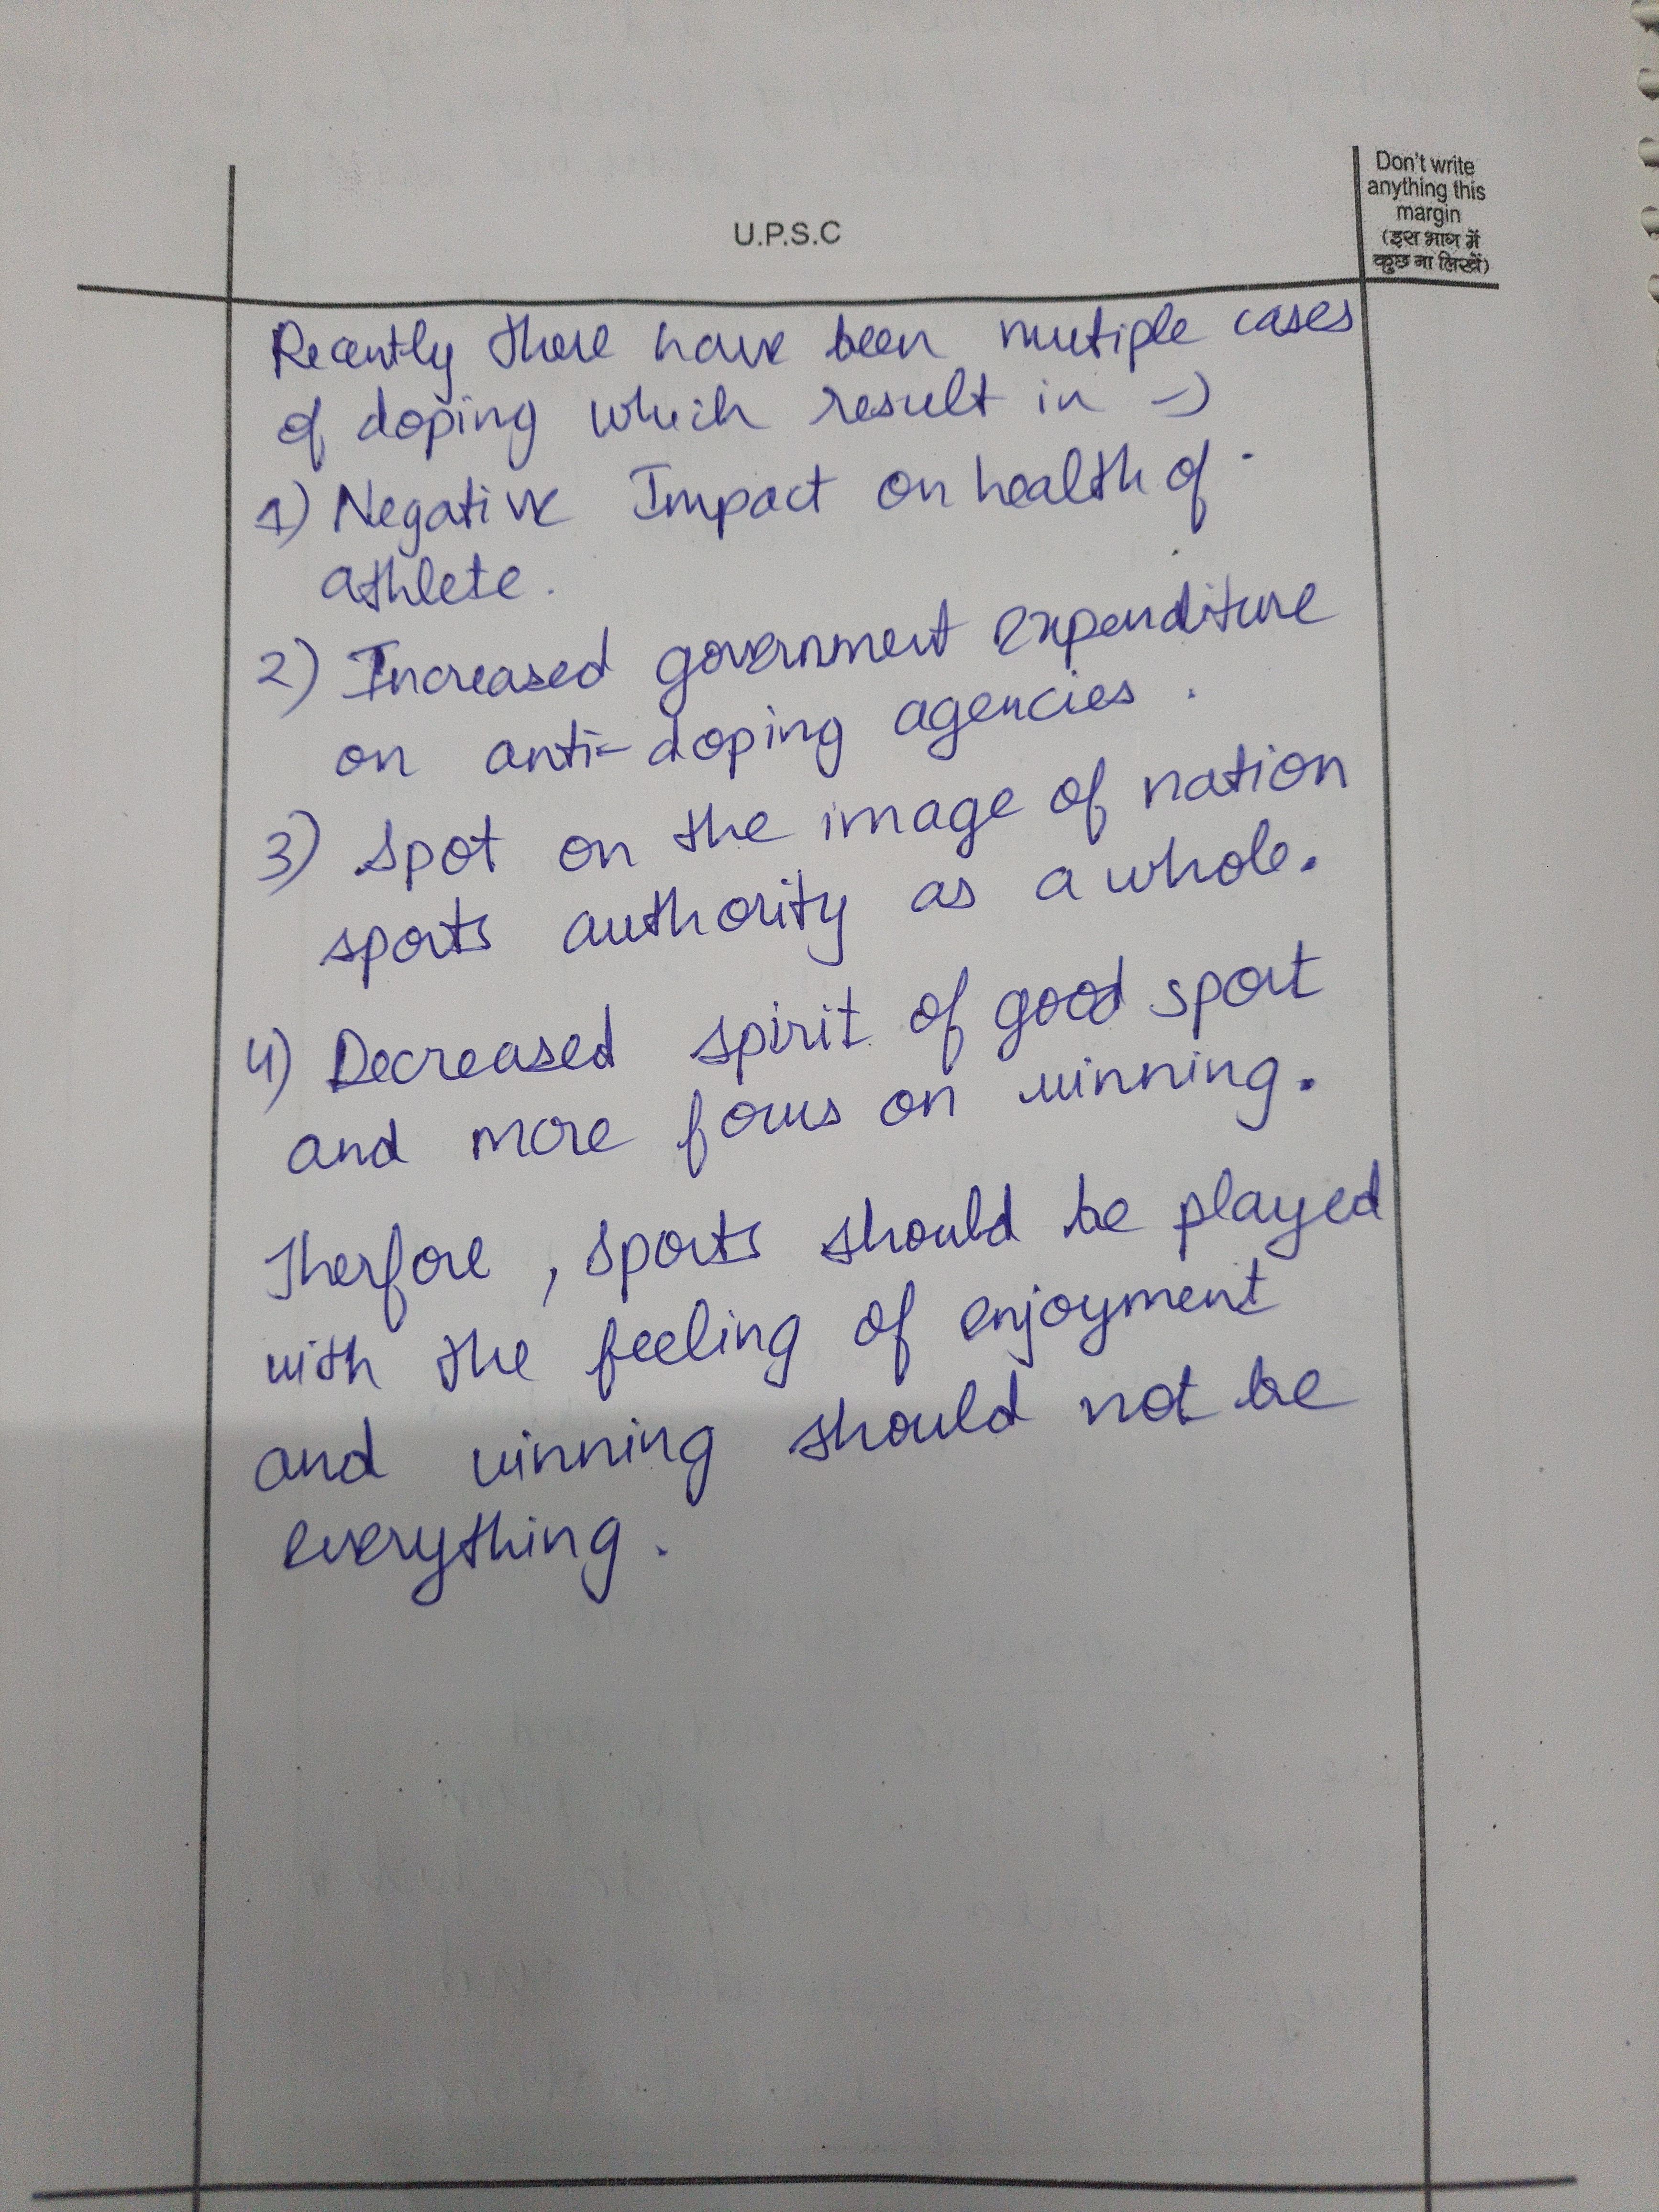 Don't write
anything this
margin
(इस भाग में
कुछ ना लिखें)
U.P.S.C
Recently there have been mutiple cases
of doping which result in →
1) Negative Impact on health of
athlete.
2) Increased government expenditure
on anti-doping agencies.
3) Spot on the image of nation
sports authority as a whole.
4) Decreased spirit of good sport
and more focus on winning.
Therfore, sports should be played
with the feeling of enjoyment
and winning should not be
everything.